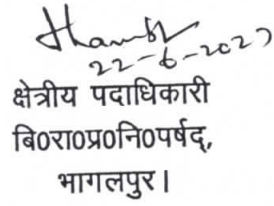 22-6-2022
क्षेत्रीय पदाधिकारी
बि0रा0प्र0नि0पर्षद्,
भागलपुर।